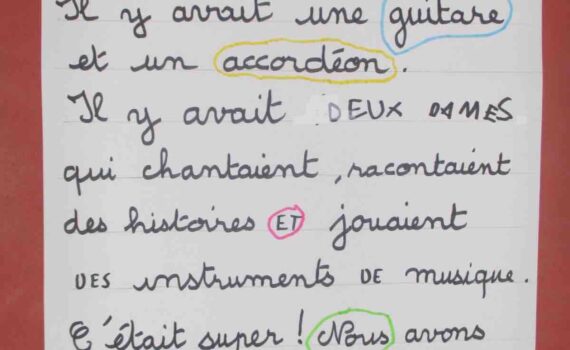 Il y avait une guitare
et un accordéon.
Il y avait DEUX DAMES
qui chantaient, racontaient
des histoires ET jouaient
DES instruments DE musique.
C'était super ! Nous avons